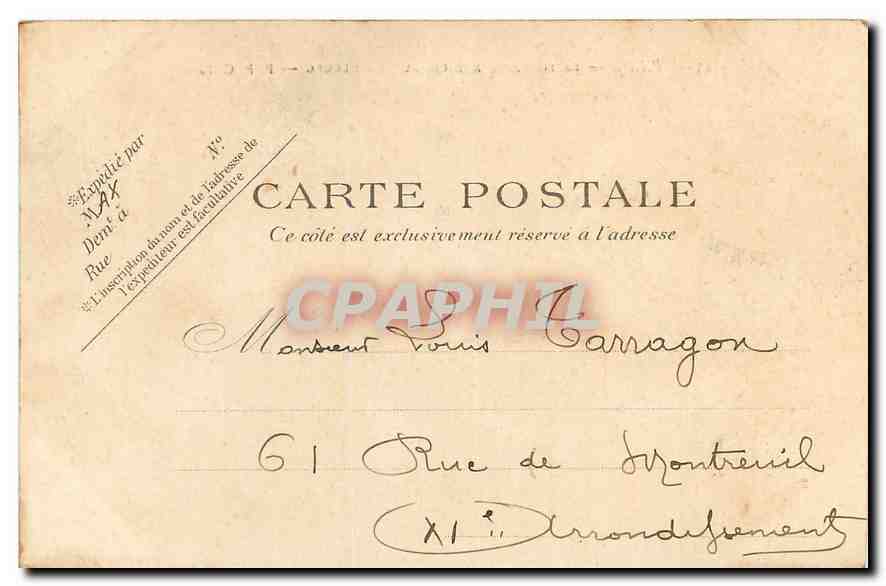 ※Expédié par
MAX
Demt à
Rue Nº
※L'inscription du nom et de l'adresse de
l'expéditeur est facultative
CARTE POSTALE
Ce côté est exclusivement réservé à l'adresse
CPAPHIL
Monsieur Louis Tarragon
61 Rue de Montreuil
XIe Arrondissement